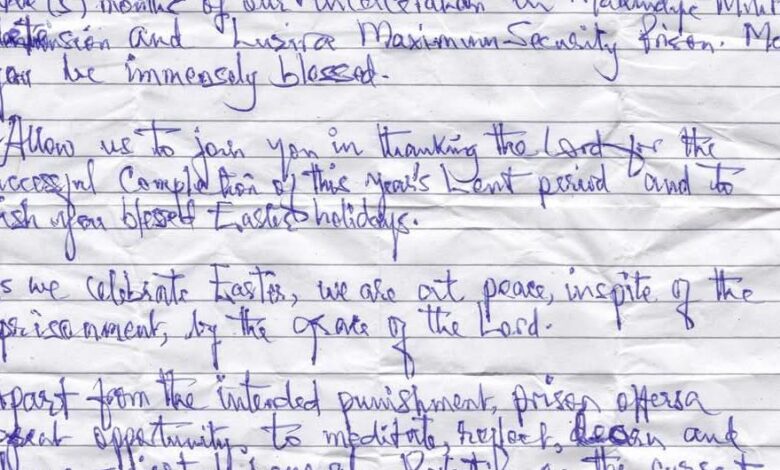 (s) months of our incarceration in
and Luzira Maximum Security prison.
be immensely blessed.
Allow us to join you in thanking the Lord for the
ccessful Completion of this year's Lent period and to
ish you blessed Easter holidays.
s we celebrate Easter, we are at peace, inspite of the
prisonment, by the grace of the Lord.
part from the intended punishment, prison offers a
opportunity, to meditate, reflect, and